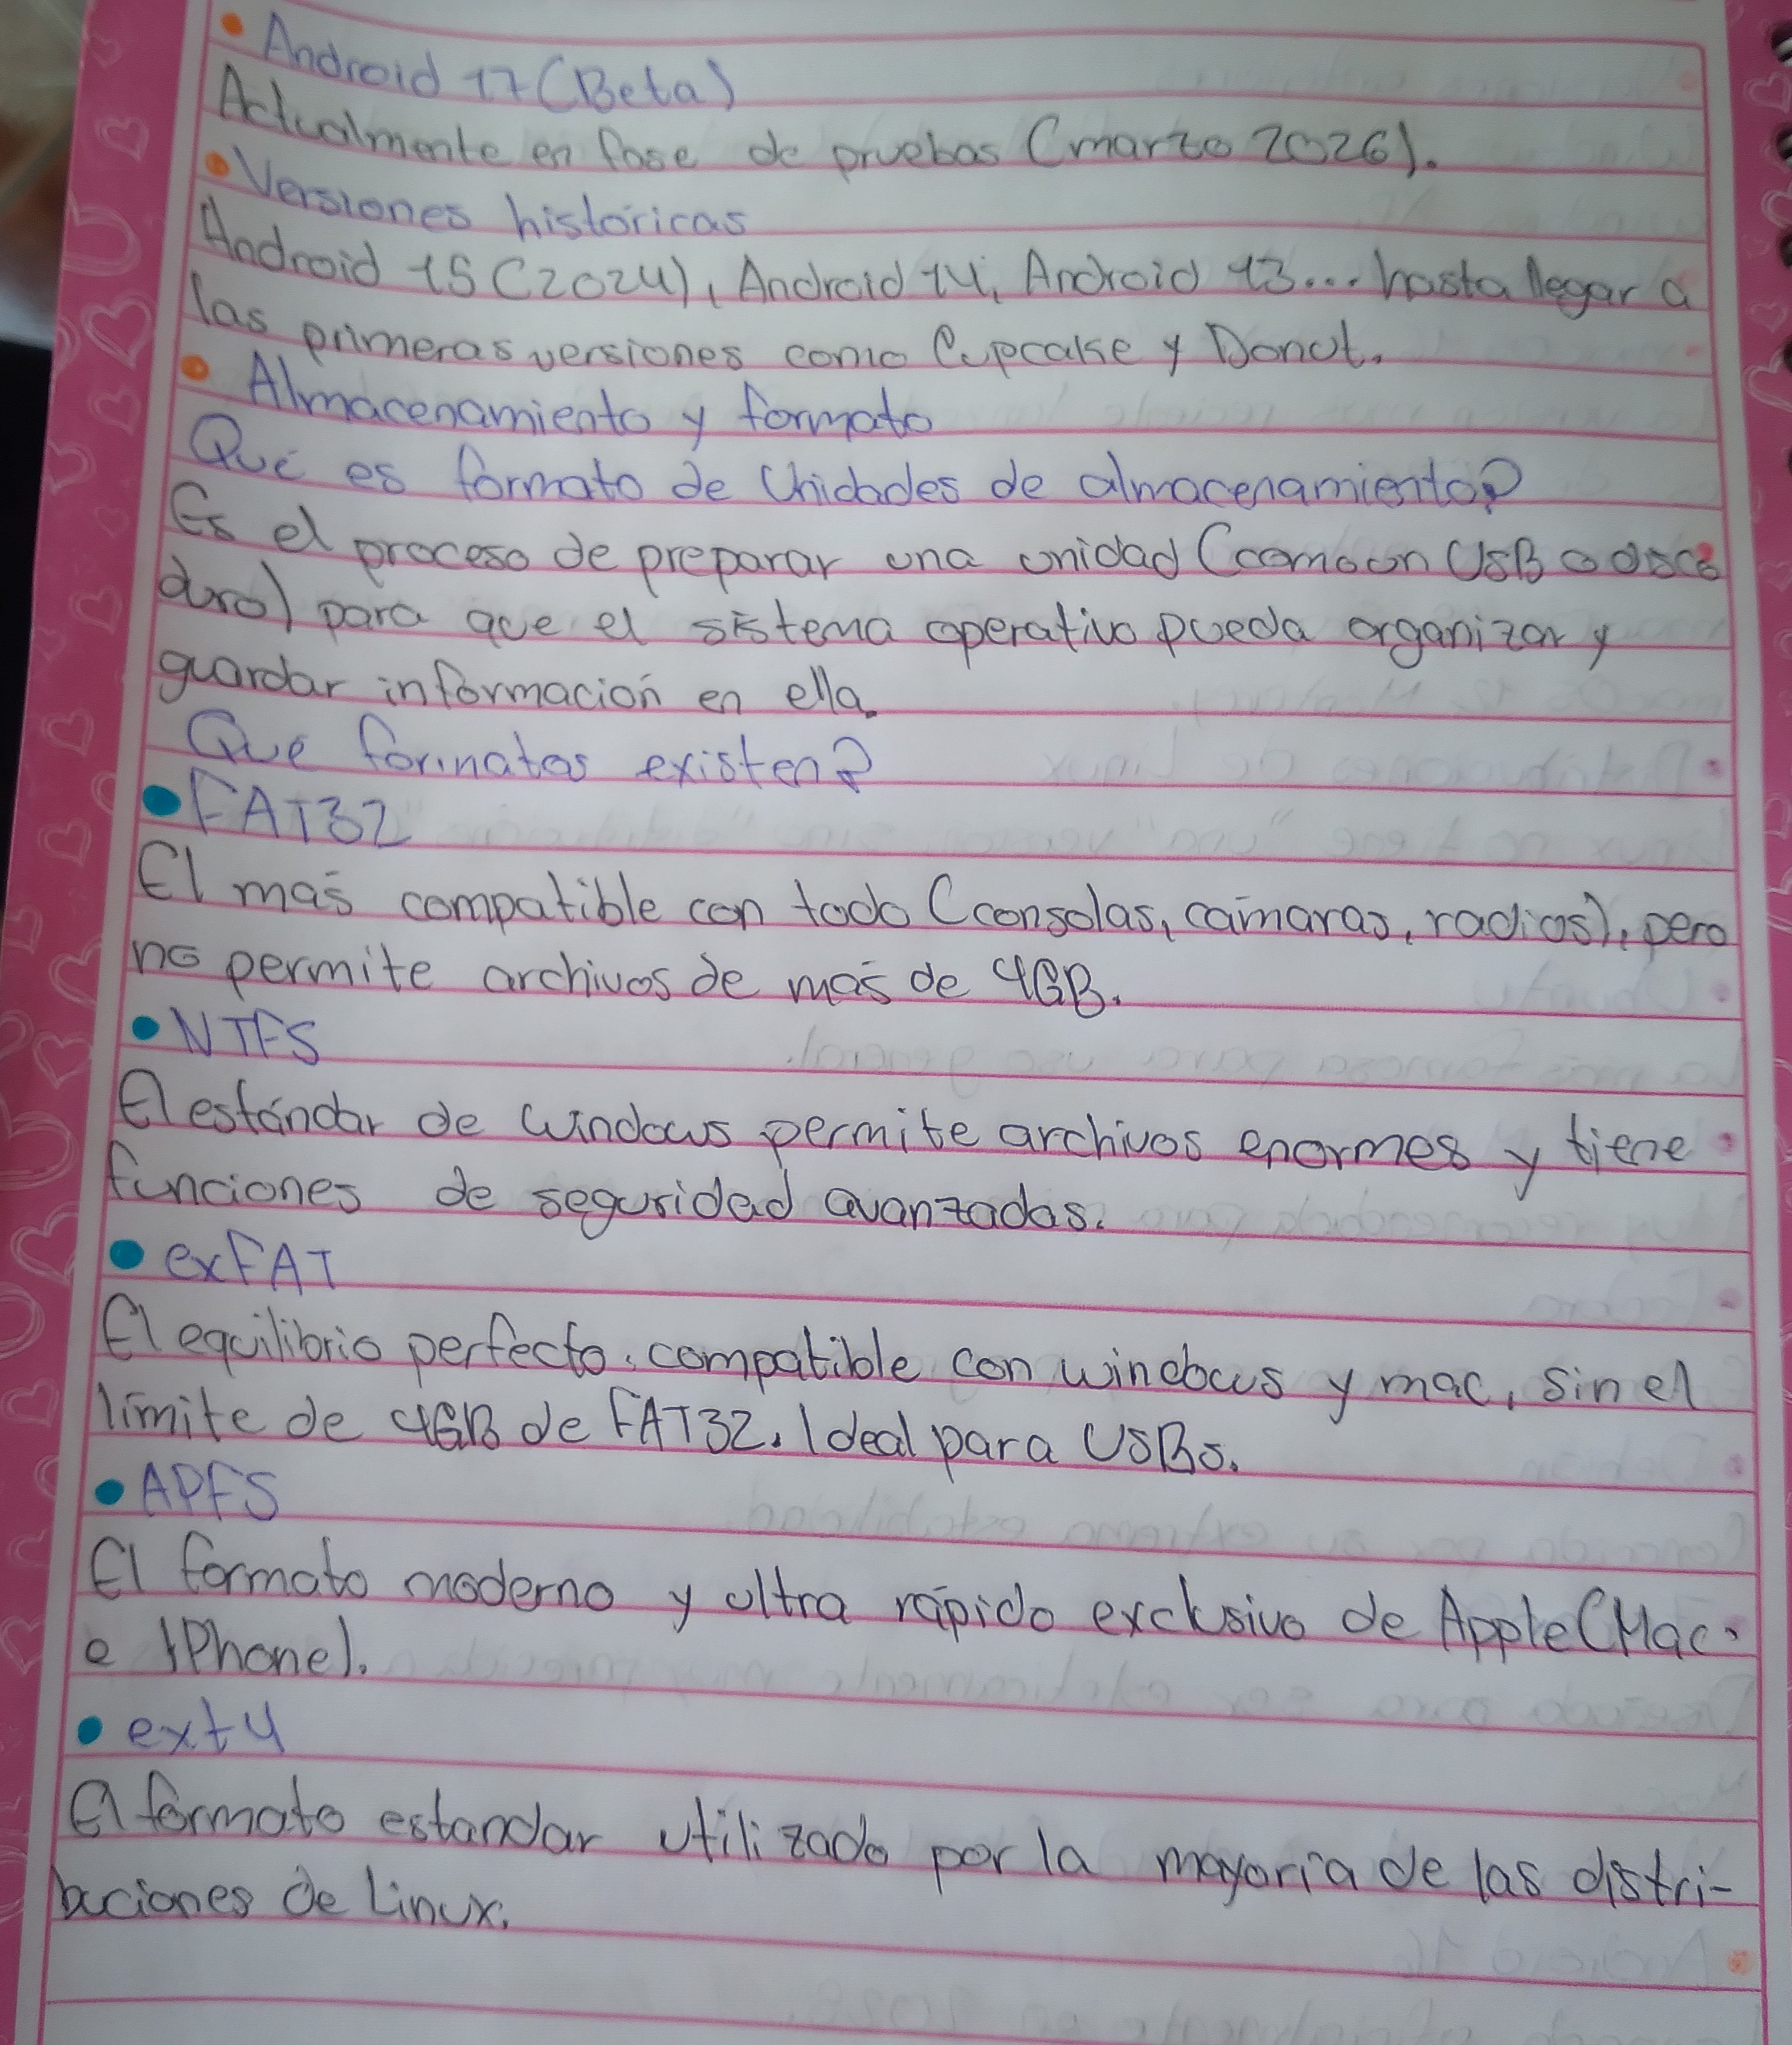 • Android 17 (Beta)
Actualmente en fase de pruebas (marzo 2026).
• Versiones históricas
Android 15 (2024), Android 14, Android 13... hasta llegar a
las primeras versiones como Cupcake y Donut.
• Almacenamiento y formato
Qué es formato de Unidades de almacenamiento?
Es el proceso de preparar una unidad (como un USB o disco
duro) para que el sistema operativo pueda organizar y
guardar información en ella.
Que formatos existen?
• FAT32
El más compatible con todo (consolas, cámaras, radios), pero
no permite archivos de más de 4GB.
• NTFS
El estándar de Windows permite archivos enormes y tiene
funciones de seguridad avanzadas.
• exFAT
El equilibrio perfecto. compatible con windows y mac, sin el
límite de 4GB de FAT32. Ideal para USBs.
• APFS
El formato moderno y ultra rápido exclusivo de Apple (Mac
e IPhone).
• ext4
El formato estandar utilizado por la mayoría de las distri-
buciones de Linux.